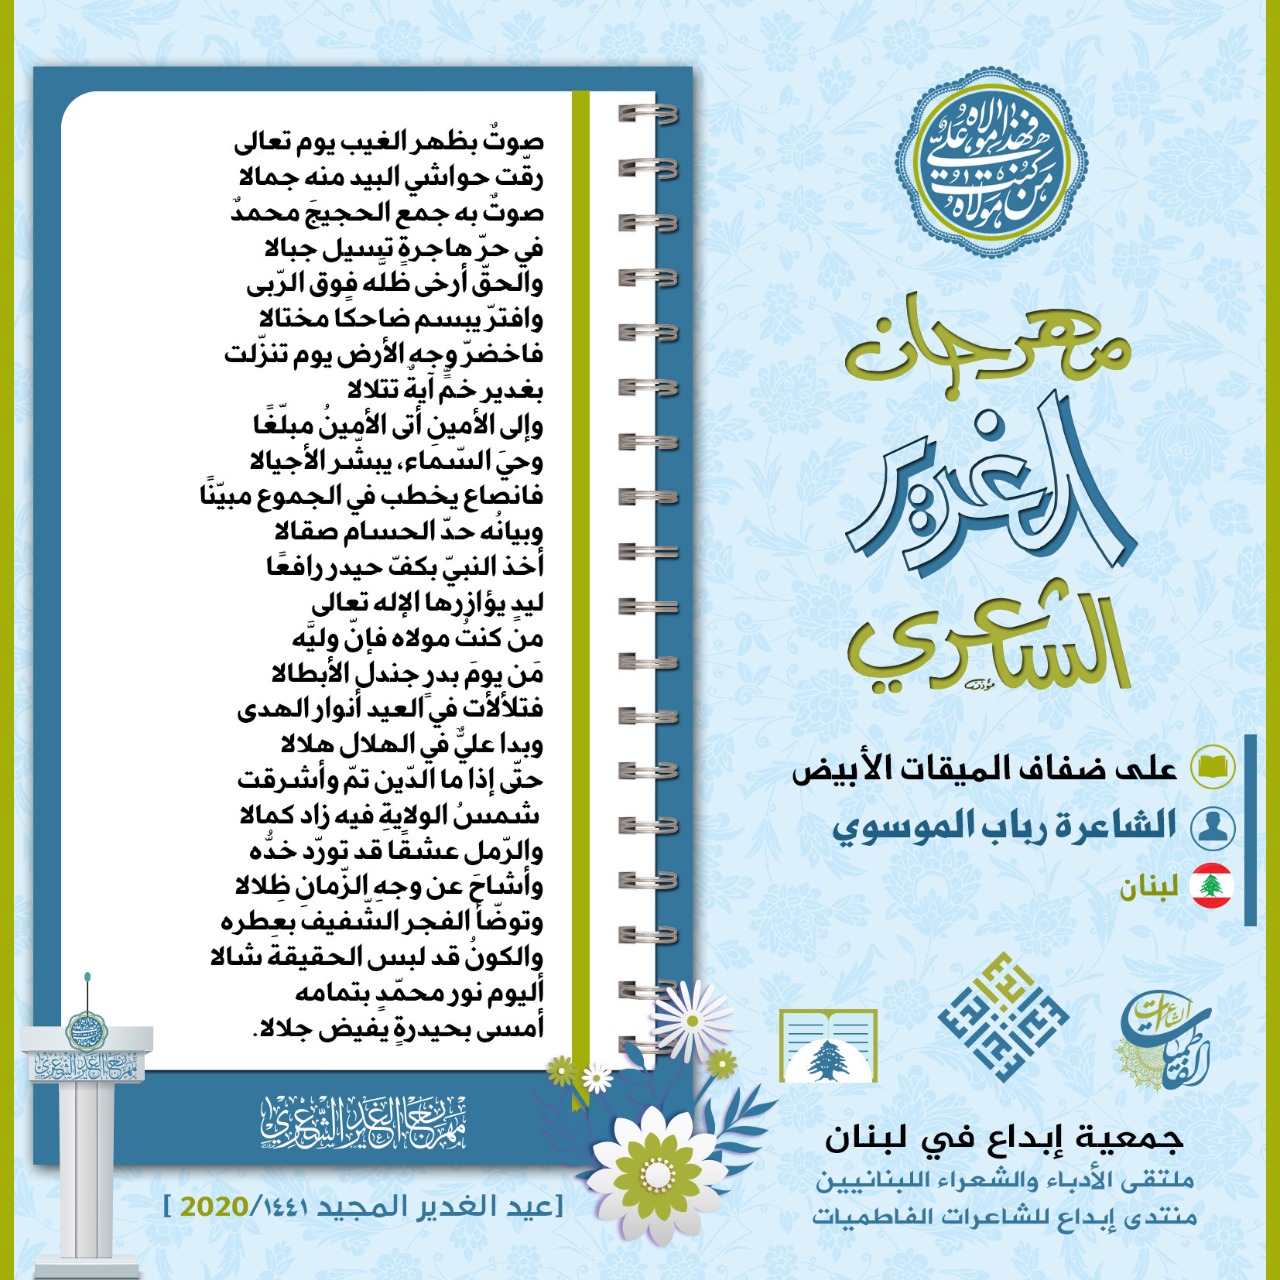 من كنت مولاه
فهذا مولاه علي
مهرجان
الغدير
الشعري
على ضفاف الميقات الأبيض
الشاعرة رباب الموسوي
لبنان
صوتٌ بظهر الغيب يوم تعالى
رقّت حواشي البيد منه جمالا
صوتٌ به جمع الحجيجَ محمدٌ
في حرّ هاجرةٍ تسيل جبالا
والحقّ أرخى ظلَّه فوق الرّبى
وافترّ يبسم ضاحكًا مختالا
فاخضرّ وجه الأرض يوم تنزّلت
بغدير خمٍّ آيةٌ تتلالا
وإلى الأمينِ أتى الأمينُ مبلّغًا
وحيَ السّماء، يبشّر الأجيالا
فانصاع يخطب في الجموع مبيّنًا
وبيانُه حدّ الحسام صقالا
أخذ النبيّ بكفّ حيدر رافعًا
ليدٍ يؤازرها الإله تعالى
من كنتُ مولاه فإنّ وليَّه
مَن يومَ بدرٍ جندل الأبطالا
فتلألأت في العيد أنوار الهدى
وبدا عليٌّ في الهلال هلالا
حتّى إذا ما الدّين تمّ وأشرقت
شمسُ الولايةِ فيه زاد كمالا
والرّمل عشقًا قد تورّد خدُّه
وأشاحَ عن وجهِ الزّمانِ ظِلالا
وتوضّأ الفجر الشّفيف بعِطره
والكونُ قد لبس الحقيقةَ شالا
أليوم نور محمّدٍ بتمامه
أمسى بحيدرةٍ يفيض جلالا.
مهرجان الغدير الشعري
[عيد الغدير المجيد ١٤٤١/2020 ]
جمعية إبداع في لبنان
ملتقى الأدباء والشعراء اللبنانيين
منتدى إبداع للشاعرات الفاطميات